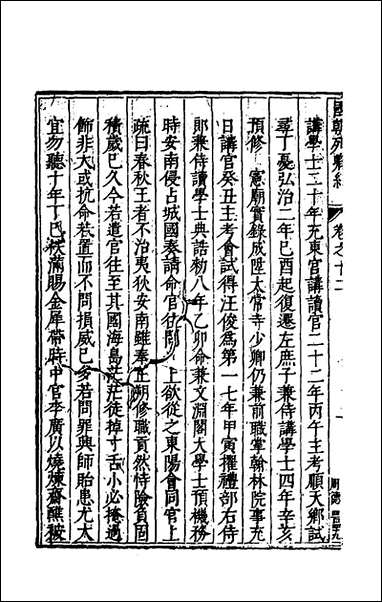 國朝列卿紀 卷之十二
講學士二十年充東宮講讀官二十二年丙午主考順天鄉試
尋丁憂弘治二年己酉起復遷左庶子兼侍講學士四年辛亥
預修 憲廟實錄成陞太常寺少卿仍兼前職掌翰林院事充
日講官癸丑主考會試得汪俊為第一七年甲寅擢禮部右侍
郎兼侍讀學士典誥勅八年乙卯命兼文淵閣大學士預機務
時安南侵占城國奏請命官往 上欲從之東陽會同官上
疏曰春秋王者不治夷狄安南雖奉正朔修職貢然恃險負固
積歲已久今若遣官往至其國海島茫茫徒掉寸舌小必掩過
飾非大或抗命若置而不問損威已多若問罪興師貽患尤大
宜勿聽十年丁巳秩滿賜金犀帶時中官李廣以燒煉齋醮被